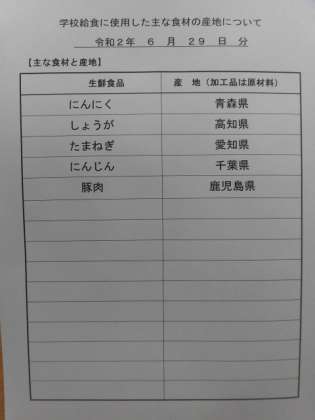 学校給食に使用した主な食材の産地について
令和２年 ６ 月 ２９ 日 分
【主な食材と産地】
生鮮食品 産 地（加工品は原材料）
にんにく 青森県
しょうが 高知県
たまねぎ 愛知県
にんじん 千葉県
豚肉 鹿児島県